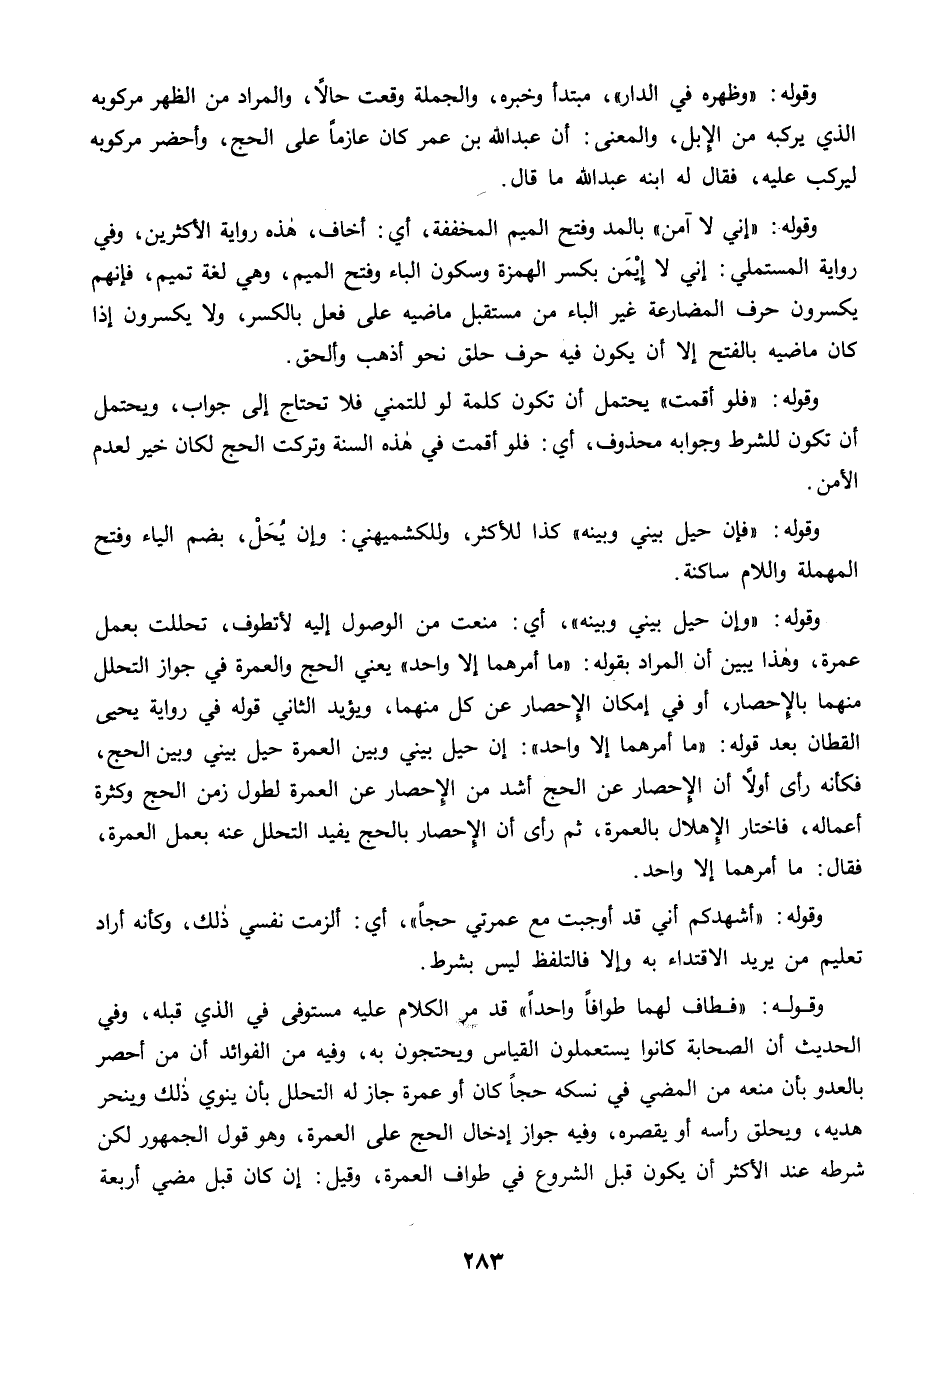 وقوله: «وظهره في الدار»، مبتدأ وخبره، والجملة وقعت حالاً، والمراد من الظهر مركوبه
الذي يركبه من الإِبل، والمعنى: أن عبدالله بن عمر كان عازماً على الحج، وأحضر مركوبه
ليركب عليه، فقال له ابنه عبدالله ما قال.
وقوله: «إني لا آمن» بالمد وفتح الميم المخففة، أي: أخاف، هٰذه رواية الأكثرين، وفي
رواية المستملي: إني لا إِيْمَن بكسر الهمزة وسكون الباء وفتح الميم، وهي لغة تميم، فإنهم
يكسرون حرف المضارعة غير الباء من مستقبل ماضيه على فعل بالكسر، ولا يكسرون إذا
كان ماضيه بالفتح إلا أن يكون فيه حرف حلق نحو أذهب وألحق.
وقوله: «فلو أقمت» يحتمل أن تكون كلمة لو للتمني فلا تحتاج إلى جواب، ويحتمل
أن تكون للشرط وجوابه محذوف، أي: فلو أقمت في هٰذه السنة وتركت الحج لكان خير لعدم
الأمن.
وقوله: «فإن حيل بيني وبينه» كذا للأكثر، وللكشميهني: وإن يُحَلْ، بضم الياء وفتح
المهملة واللام ساكنة.
وقوله: «وإن حيل بيني وبينه»، أي: منعت من الوصول إليه لأتطوف، تحللت بعمل
عمرة، وهٰذا يبين أن المراد بقوله: «ما أمرهما إلا واحد» يعني الحج والعمرة في جواز التحلل
منهما بالإِحصار، أو في إمكان الإِحصار عن كل منهما، ويؤيد الثاني قوله في رواية يحيى
القطان بعد قوله: «ما أمرهما إلا واحد»: إن حيل بيني وبين العمرة حيل بيني وبين الحج،
فكأنه رأى أولاً أن الإِحصار عن الحج أشد من الإِحصار عن العمرة لطول زمن الحج وكثرة
أعماله، فاختار الإِهلال بالعمرة، ثم رأى أن الإِحصار بالحج يفيد التحلل عنه بعمل العمرة،
فقال: ما أمرهما إلا واحد.
وقوله: «أشهدكم أني قد أوجبت مع عمرتي حجاً»، أي: ألزمت نفسي ذٰلك، وكأنه أراد
تعليم من يريد الاقتداء به وإلا فالتلفظ ليس بشرط.
وقوله: «فطاف لهما طوافاً واحداً» قد مر الكلام عليه مستوفى في الذي قبله، وفي
الحديث أن الصحابة كانوا يستعملون القياس ويحتجون به، وفيه من الفوائد أن من أحصر
بالعدو بأن منعه من المضي في نسكه حجاً كان أو عمرة جاز له التحلل بأن ينوي ذٰلك وينحر
هديه، ويحلق رأسه أو يقصره، وفيه جواز إدخال الحج على العمرة، وهو قول الجمهور لكن
شرطه عند الأكثر أن يكون قبل الشروع في طواف العمرة، وقيل: إن كان قبل مضي أربعة
٢٨٣